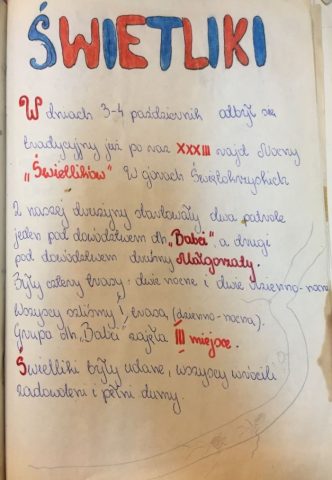 ŚWIETLIKI
W dniach 3-4 październik odbył się
tradycyjny już po raz XXXIII rajd Nocny
„Świetlików" W górach Świętokrzyskich
Z naszej drużyny startowały dwa patrole
jeden pod dowództwem dh „Babci", a drugi
pod dowództwem druhny Małgorzaty.
Były cztery trasy: dwie nocne i dwie dzienno-nocne
Wszyscy szliśmy I trasą (dzienno-nocną).
Grupa dh „Babci" zajęła III miejsce.
Świetliki były udane, wszyscy wrócili
zadowoleni i pełni dumy.